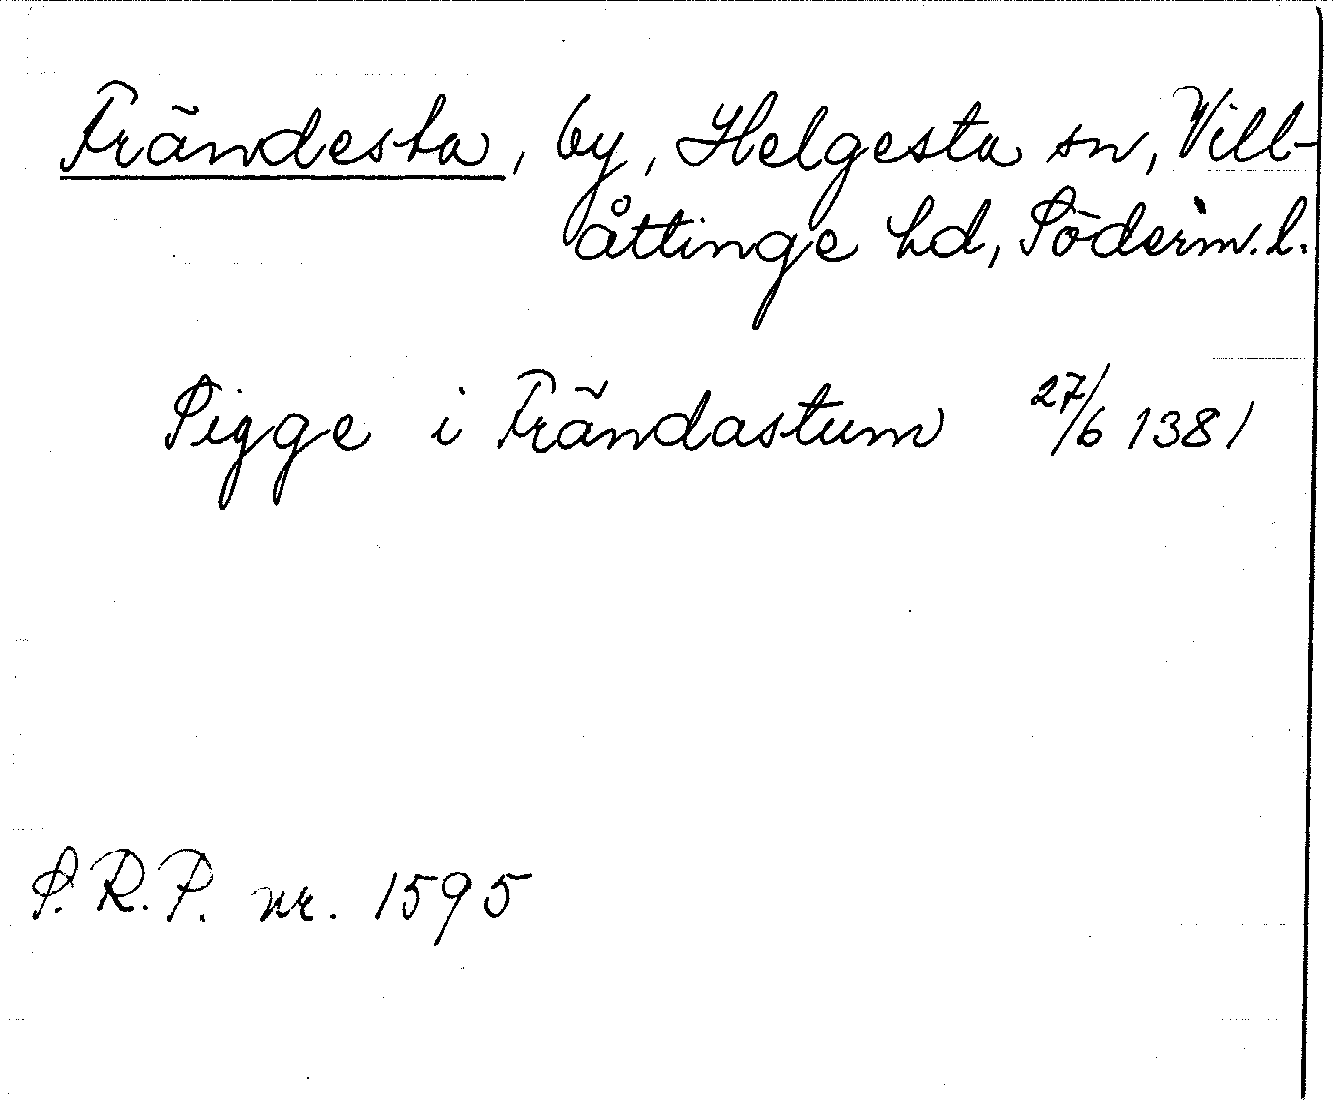 Frändesta, by, Helgesta sn, Vill-
åttinge hd, Söderm. l.
Sigge i Frändastum 27/6 1381
S.R.P. nr. 1595